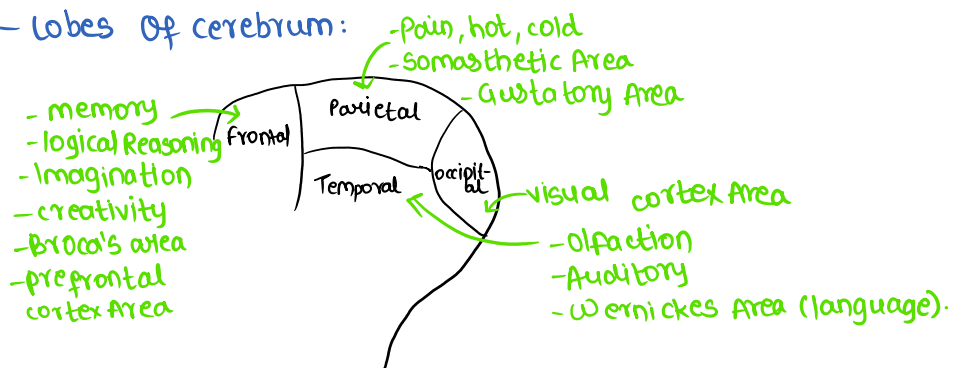 - Lobes Of Cerebrum:
- Pain, hot, cold
- Somasthetic Area
- Gustatory Area
Parietal
- memory
- logical Reasoning
- Imagination
- creativity
- Broca's area
- prefrontal
cortex Area
frontal
Temporal
occipit-
al
- visual cortex Area
- Olfaction
- Auditory
- Wernickes Area (language).